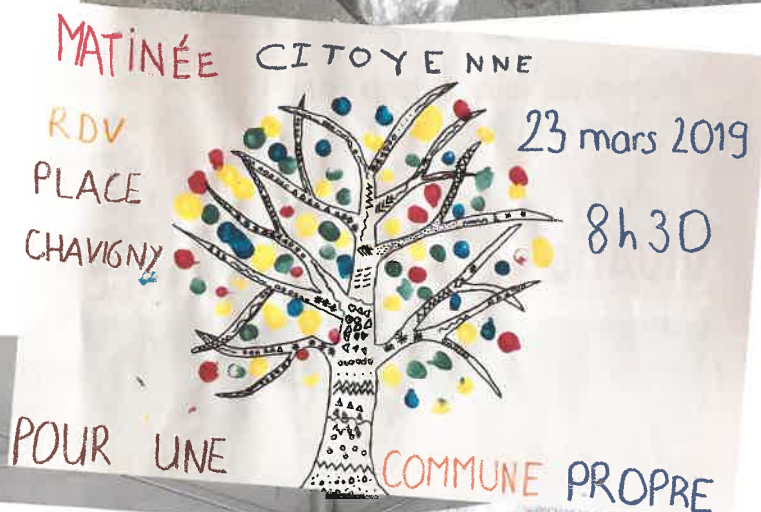 MATINÉE CITOYENNE
RDV
PLACE
CHAVIGNY
23 mars 2019
8h30
POUR UNE COMMUNE PROPRE